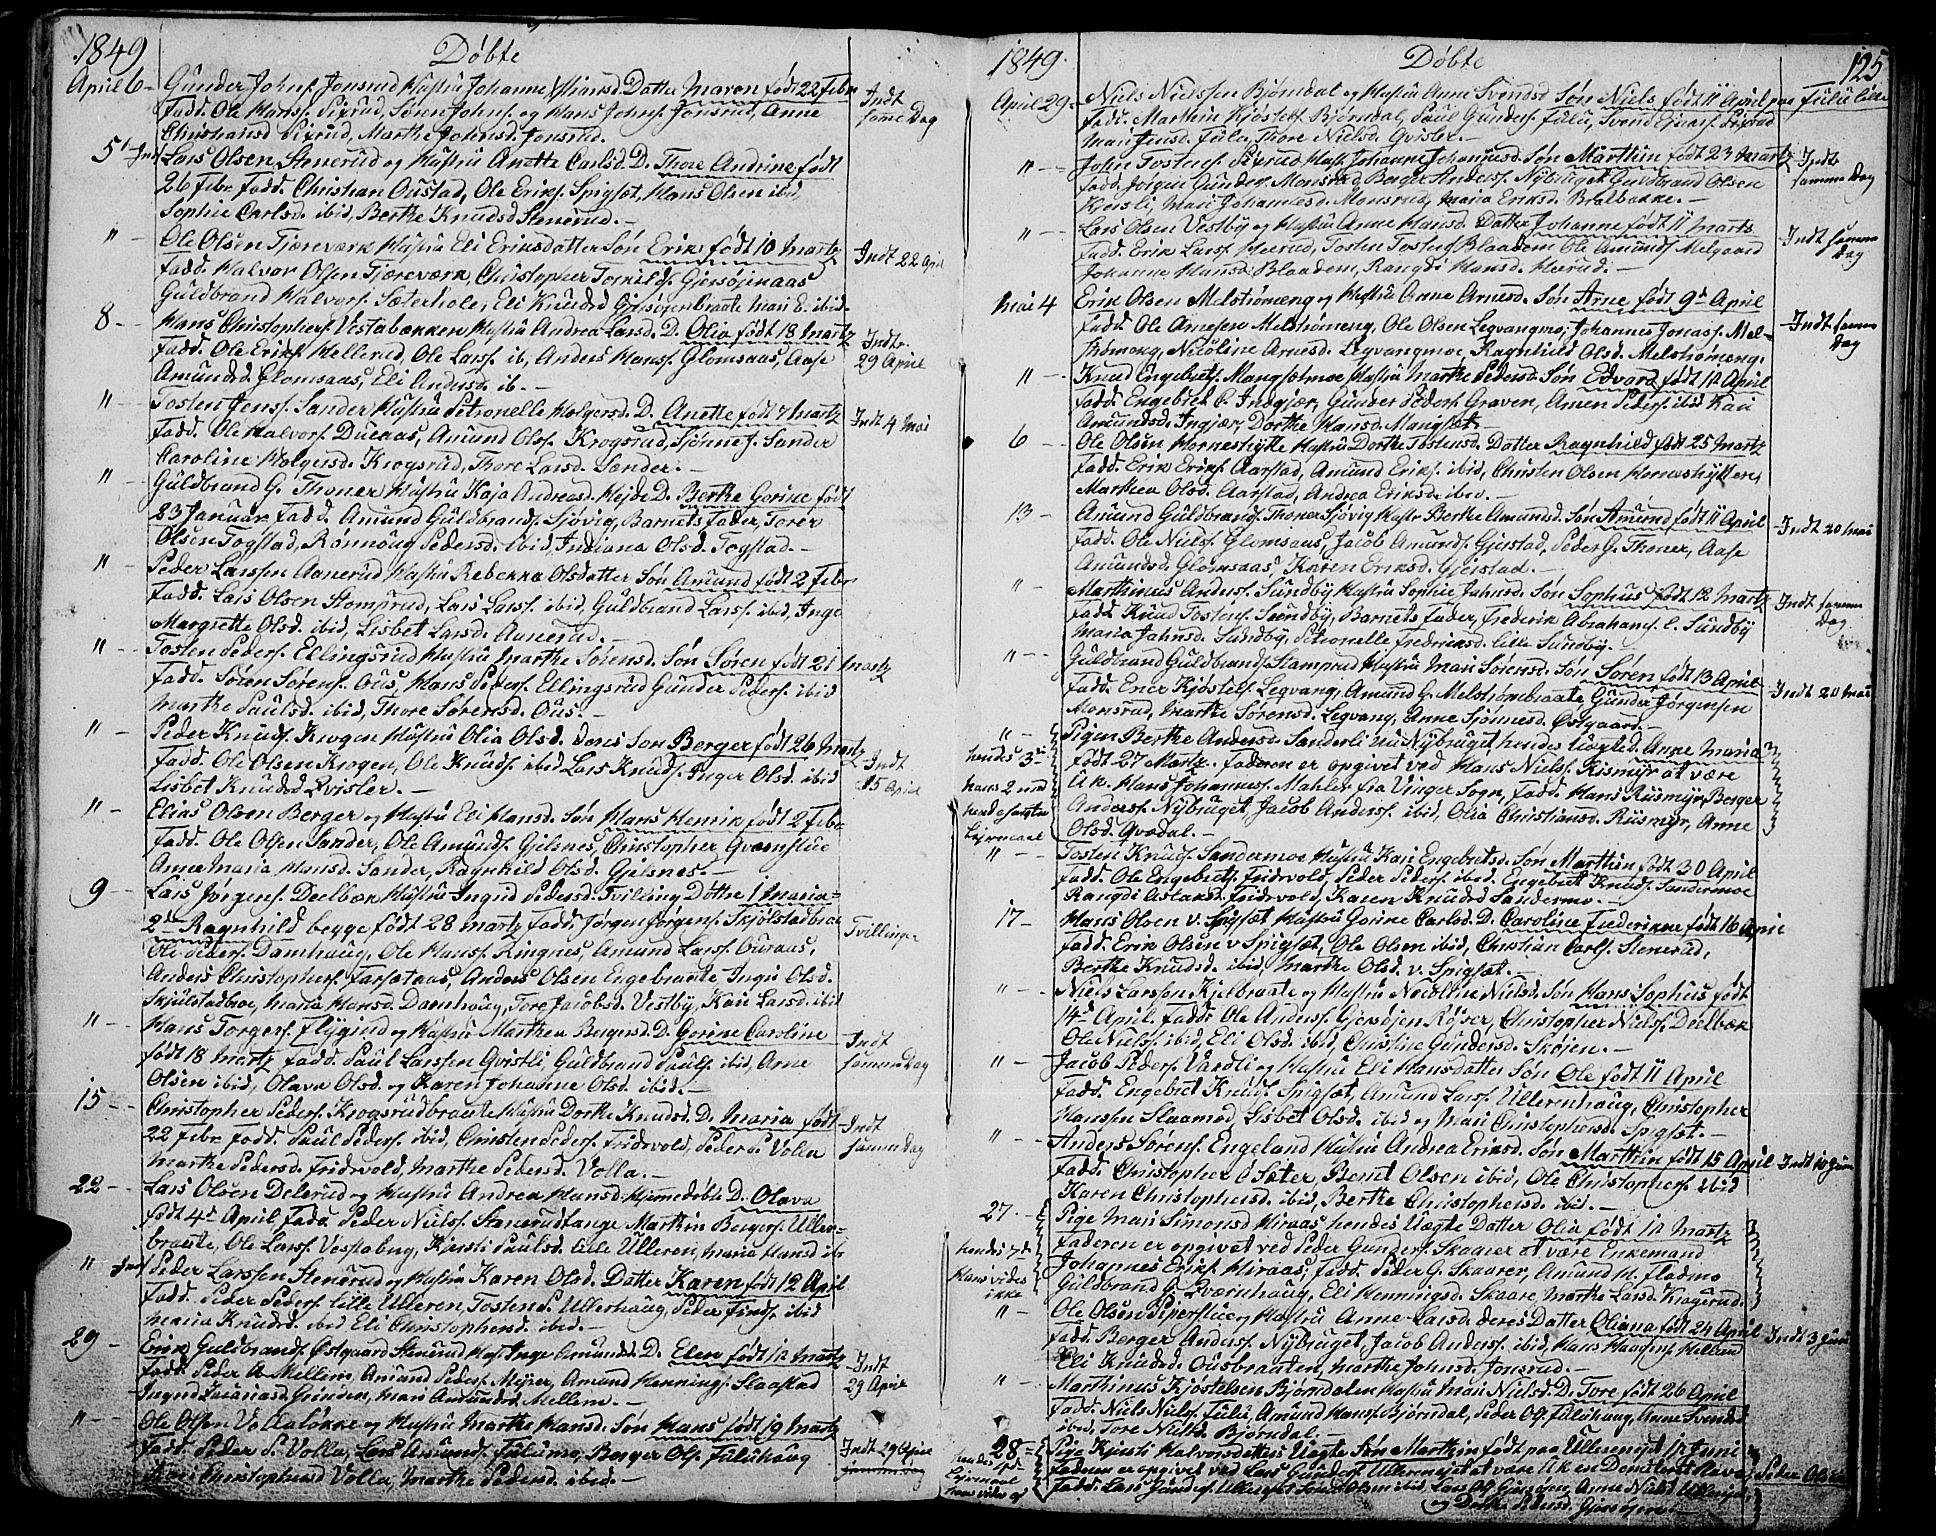 1849 Døbte
April 6 - Gunder Johns. Jonsrud Hustru Johanne Hansd. Datter Maren født 22 Febr.
Fadd. Ole Hans. Sifrud, Søren Johns. og Hans Johns. Jonsrud, Anne
Indt samme Dag
Christiansd. Sifrud, Marthe Johnsd. Jonsrud.
5te Lars Olsen Stenerud og Hustru Anette Carlsd. D. Thore Andrine født
26 Febr. Fadd. Christian Oustad, Ole Eriks. Spigset, Hans Olsen ibid,
Sophie Carlsd. ibid, Berthe Knudsd. Stenerud. -
" - Ole Olsen Tjøreværk Hustru Eli Eriksdatter Søn Erik født 10 Martz
Indt 22 April
Fadd. Halvor Olsen Tjæreværk, Christopher Torkilds. Gjersøjenaas
Guldbrand Halvors. Sæterhole, Eli Knudsd. Gjersøjenbraate Mari E. ibid.
8 - Hans Christophers. Vestabækken Hustru Andrea Larsd. D. Olia født 18 Martz
Indt. 29 April
Fadd. Ole Eriks. Hellerud, Ole Larss. ib, Anders Hanss. Glomsaas, Aase
Amundsd. Glomsaas, Eli Andersd. ib. -
" - Tosten Jens. Sander Hustru Petronelle Holgersd. D. Anette født 7 Martz
Indt 4 Mai
Fadd. Ole Halvors. Duenas, Amund Olss. Krogsrud, Sjønne J. Sander
Caroline Holgersd. Krogsrud, Thore Larsd. Sander. -
" - Guldbrand G. Thoner Hustru Kaja Andreasd. Hejde D. Berthe Gorine født
23 Januar Fadd. Amund Guldbrands. Sjøvig, Barnets Fader, Torer
Olsen Togstad, Rønnoug Pedersd. ibid Indiana Olsd. Togstad. -
" - Peder Larssen Aanerud Hustru Rebekka Olsdatter Søn Amund født 2 Febr.
Fadd. Lars Olsen Stomprud, Lars Larss. ibid, Guldbrand Larss. ibid, Inge
Margrette Olsd. ibid, Lisbet Larsd. Aanerud. -
" - Tosten Peders. Ellingsrud Hustru Marthe Sørensd. Søn Søren født 21 Martz
Fadd. Søren Sørens. Ous, Hans Peders. Ellingsrud Gunder Peders. ibid
Marthe Paulsd. ibid, Thore Sørensd. Ous. -
" - Peder Knuds. Krogen Hustru Olia Olsd. deres Søn Berger født 26 Martz
Indt 15 April
Fadd. Ole Olsen Krogen, Ole Knuds. ibid Lars Knuds. Inger Olsd. ibid
Lisbet Knudsd. Qvisler. -
" - Elias Olsen Berger og Hustru Eli Hansd. Søn Hans Henrik født 2 Febr.
Fadd. Ole Olsen Sander, Ole Amunds. Gjelsnes, Christopher Gvernflue
Anne Maria Hansd. Sander, Ragnhild Olsd. Gjelsnes. -
9 - Lars Jørgens. Deelbæk Hustru Ingrid Pedersd. Tvilling Døttre 1 Maria =
2den Ragnhild begge født 28 Martz Fadd. Jørgen Jørgens. Skjølstadbraa
Tvillinger
Ole Peders. Damhaug, Ole Hanss. Ringnes, Amund Larss. Ouraas,
Anders Christophers. Farsætaas, Anders Olsen Engebraate Ingri Olsd.
Skjulstadboe, Maria Hansd. Damhaug, Tore Jacobsd. Vestby, Kari Larsd. ibid
" - Hans Torgers. Flygind og Hustru Marthea Bergersd. D. Gorine Caroline
Indt samme Dag
født 18 Martz Fadd. Paul Larssen Qvistli, Guldbrand Pauls. ibid, Arne
Olsen ibid, Olava Olsd. og Karen Johanne Olsd. ibid. -
15 - Christopher Peders. Krogsrudbraate Hustru Dorthe Knudsd. D. Maria født
Indt samme Dag
22 Febr. Fadd. Paul Peders. ibid, Christen Peders. Fridsvold, Peder P. Volla
Marthe Pedersd. Fridsvold, Marthe Pedersd. Volla. -
22 - Lars Olsen Delerud og Hustru Andrea Hansd. hjemmedøbte D. Olava
født 4de April Fadd. Peder Niels. Stenerudtange Marthin Bergers. Uller-
braate, Ole Larss. Vestabug, Kjersti Paulsd. lille Ulleren, Maria Hansd. ib.
" Peder Larssen Stenerud og Hustru Karen Olsd. Datter Karen født 12 April
Fadd. Peder Peders. lille Ulleren, Tosten P. Ullerhaug, Peder Finds. ibid
Maria Knudsd. ibid Eli Christophersd. ibid. -
29 - Erik Guldbrands. Østgaard Stenerud Hust. Inge Amundsd. D. Elen født 12 Martz
Indt 29 April
Fadd. Peder A. Mellem, Amund Peders. Mejer, Amund Hennings. Slaastad
Ingrid Zacariasd. Grinden, Mari Amundsd. Mellem. -
" - Ole Olsen Vollaløkke og Hustru Marthe Hansd. Søn Hans født 19 Martz
Indt 29 April
Fadd. Peder P. Volla, Lars Amunds. Fulumo, Berger Ols. Fuluhaug
samme dag
Kari Christophersd. Volla, Marthe Pedersd. ibid. -
1849. Døbte 125
April 29 - Niels Nielssen Bjørndal og Hustru Anne Svendsd. Søn Niels født 11 April paa Fulu lille
Fadd. Marthin Kjøstels. Bjørndal, Paul Gunders. Fulu, Svend Ejnars. Sifrud
Mari Jensd. Fulu, Thore Nielsd. Qvisler. -
" - John Tostens. Sifrud Hust. Johanne Johannesd. Søn Marthin født 23 Martz
Indt samme Dag
Fadd. Jørgen Gunders. Monsrud Berger Anderss. Nybruget Guldbrand Olsen
Kjersli Mari Johannesd. Monsrud, Maria Eriksd. Bralbakke. -
" - Lars Olsen Vestby og Hustru Anne Hansd. Datter Johanne født 11 Marts
Indt samme Dag
Fadd. Erik Larss. Hverud, Tosten Tostens. Blaadem Ole Amunds. Melgaard
Johanne Hansd. Blaadem, Rangdi Hansd. Hverud. -
Mai 4 Erik Olsen Melstrømeng og Hustru Anne Arnesd. Søn Arne født 9de April
Indt samme Dag
Fadd. Ole Arnesen Melstrømeng, Ole Olsen Legvangmoe, Johannes Jonass. Mel-
strømeng, Nicoline Arnesd. Legvangmoe, Ragnhild Olsd. Melstrømeng.
" - Knud Engebrets. Mangsetmoe Hustru Marthe Pedersd. Søn Edvard født 12 April
Fadd. Engebret C. Indgjær, Gunder Peders. Graven, Amen Peders. ibid Kari
Amundsd. Ingjær, Dorthe Hansd. Mangset. -
6 - Ole Olsen Horneshytte Hustru Dorthe Tostensd. Datter Ragnhild født 25 Martz
Fadd. Erik Eriks. Aarstad, Amund Eriks. ibid, Christen Olsen Horneshytten,
Marthea Olsd. Aarstad, Andrea Eriksd. ibid. -
13 - Amund Guldbrands. Thoner Sjøvig Hustr. Berthe Amundsd. Søn Amund født 11 April
Indt 20 Mai
Fadd. Ole Niels. Glomsaas, Jacob Amunds. Gjerstad, Peder G. Thoner, Aase
Amundsd. Glomsaas, Karen Eriksd. Gjerstad. -
" - Marthinus Anders. Sundby Hustru Sophie Jahnsd. Søn Sophus født 12 Martz
Indt samme Dag
Fadd. Knud Tostens. Sundby, Barnets Fader, Frederik Abrahams. l. Sundby
Maria Jahnsd. Sundby, Petronelle Fredriksd. lille Sundby. -
" - Guldbrand Guldbrands. Stamprud Hustru Mari Sørensd. Søn Søren født 13 April
Indt 20 Mai
Fadd. Ener Kjøstels. Legvang, Amund G. Melstrømbraate Gunder Jørgensen
Monsrud, Marthe Sørensd. Legvang, Anne Sjønnesd. Østgaard. -
" - Pigen Berthe Andersd. Sanderli nu Nybruget, hendes Uægted. Anne Maria
hendes 3die
født 27 Martz. Faderen er opgivet ved Hans Niels. Rismyr at være
hans 2 med
U.k. Hans Johanness. Mahler fra Vinger Sogn, Fadd. Hans Riismyr, Berger
Leiermaal
Anderss. Nybruget, Jacob Anderss. ibid, Olia Christiansd. Riismyr, Anne
Olsd. Qvædal. -
" - Tosten Knuds. Sandermoe Hustru Kari Engebretsd. Søn Marthin født 30 April
Fadd. Ole Engebrets. Fridsvold, Peder Peders. ibid. Engebret Knuds. Sandermoe
Rangdi Aslaksd. Fridsvold, Karen Knudsd. Sandermo. -
17 - Hans Olsen v. Spigset Hustru Gorine Carlsd. D. Caroline Frederikke født 16 April
Fadd. Erik Olsen v. Spigset, Ole Olsen ibid, Christian Carls. Stenerud,
Berthe Knudsd. ibid, Marthe Olsd. v. Spigset. -
" - Niels Larssen Kjelbraate og Hustru Nicoline Nielsd. Søn Hans Sophus født
14de April. Fadd. Ole Anders. Gjersøjen Røjser, Christopher Niels. Deelbæk
Ole Niels. ibid, Eli Olsd. ibid, Christine Gundersd. Skøjen. -
" - Jacob Peders. Vardli og Hustru Eli Hansdatter Søn Ole født 11 April
Fadd. Engebret Knuds. Spigset, Amund Larss. Ullerenhaug, Christopher
Hanssen Slaamod, Lisbet Olsd. ibid og Mari Christophersd. Spigset. -
" - Anders Sørens. Engeland Hustru Andrea Eriksd. Søn Marthin født 15 April Indt 10 Juni
Fadd. Christopher O. Sater, Bernt Olsen ibid, Ole Christophers. ibid
Karen Christophersd. ibid, Berthe Christophersd. ibid. -
27. - Pige Mari Simonsd. Hiraas, hendes Uægte Datter Olia født 12 Martz
hendes 2de
Faderen er opgivet ved Peder Gunders. Skaarer at være Enkemand
Hans vides
Johannes Eriks. Hiraas, Fadd. Peder G. Skaarer, Amund H. Fladmo
ikke
Guldbrand G. Qværnhaug, Eli Henningsd. Skaare, Marthe Larsd. Kragerud.
" - Ole Olsen Piperfluen Hustru Anne Larsd. deres Datter Oliana født 24 April Indt 3 Juni
Fadd. Berger Anderss. Nybruget, Jacob Anderss. ibid, Hans Haagens. Mellem
Eli Knudsd. Ousbraaten, Marthe Johnsd. Jonsrud. -
" - Marthinus Kjøstelsen Bjørndalen Hustru Mari Nielsd. D. Tore født 26 April
Fadd. Niels Niels. Fulu, Amund Hans. Bjørndal, Peder Ols. Fuluhaug, Anne Svendsd.
ibid, Tore Nielsd. Bjørndal. -
28 = Pige Kjersti Halvorsdatters Uægte Søn Marthin født paa Ullerenejet 12 Juni
Faderen er opgivet ved Lars Gunders. Ullerenejet at være U.k. en Demitteret Peder Olsen
Leiermaal
Fadd. Lars Gunders. Ullerenejet, ibid, Lars Ols. Gjersøjen, Anne Nielsd. Ullerejet,
hans vides ej
og Dorthe Pedersd. Gjersøjen. -